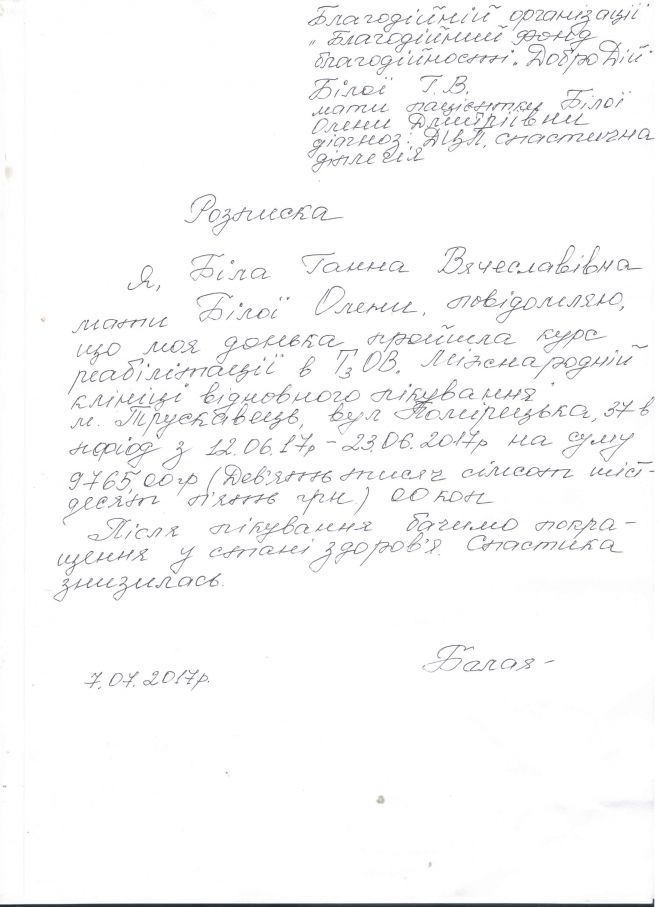 Благодійній організації
„Благодійний фонд
благодійности. ДоброДій
Білої Г.В.
мати пацієнтки Білої
Олени Дмитріївни
діагноз: ДЦП, спастична
диплегія
Розписка
Я, Біла Ганна Вячеславівна
мати Білої Олени, повідомляю,
що моя донька пройшла курс
реабілітації в ТзОВ. Міжнародній
клініці відновного лікування"
м. Трускавець, вул Помірецька, 37 в
період з 12.06.17р - 23.06.2017р на суму
9765,00гр (Дев'ять тисяч сімсот шіст-
десят п'ять грн) 00 коп
Після лікування бачимо покра-
щення у стані здоров'я. Спастика
знизилась.
7.07.2017р.
Белая